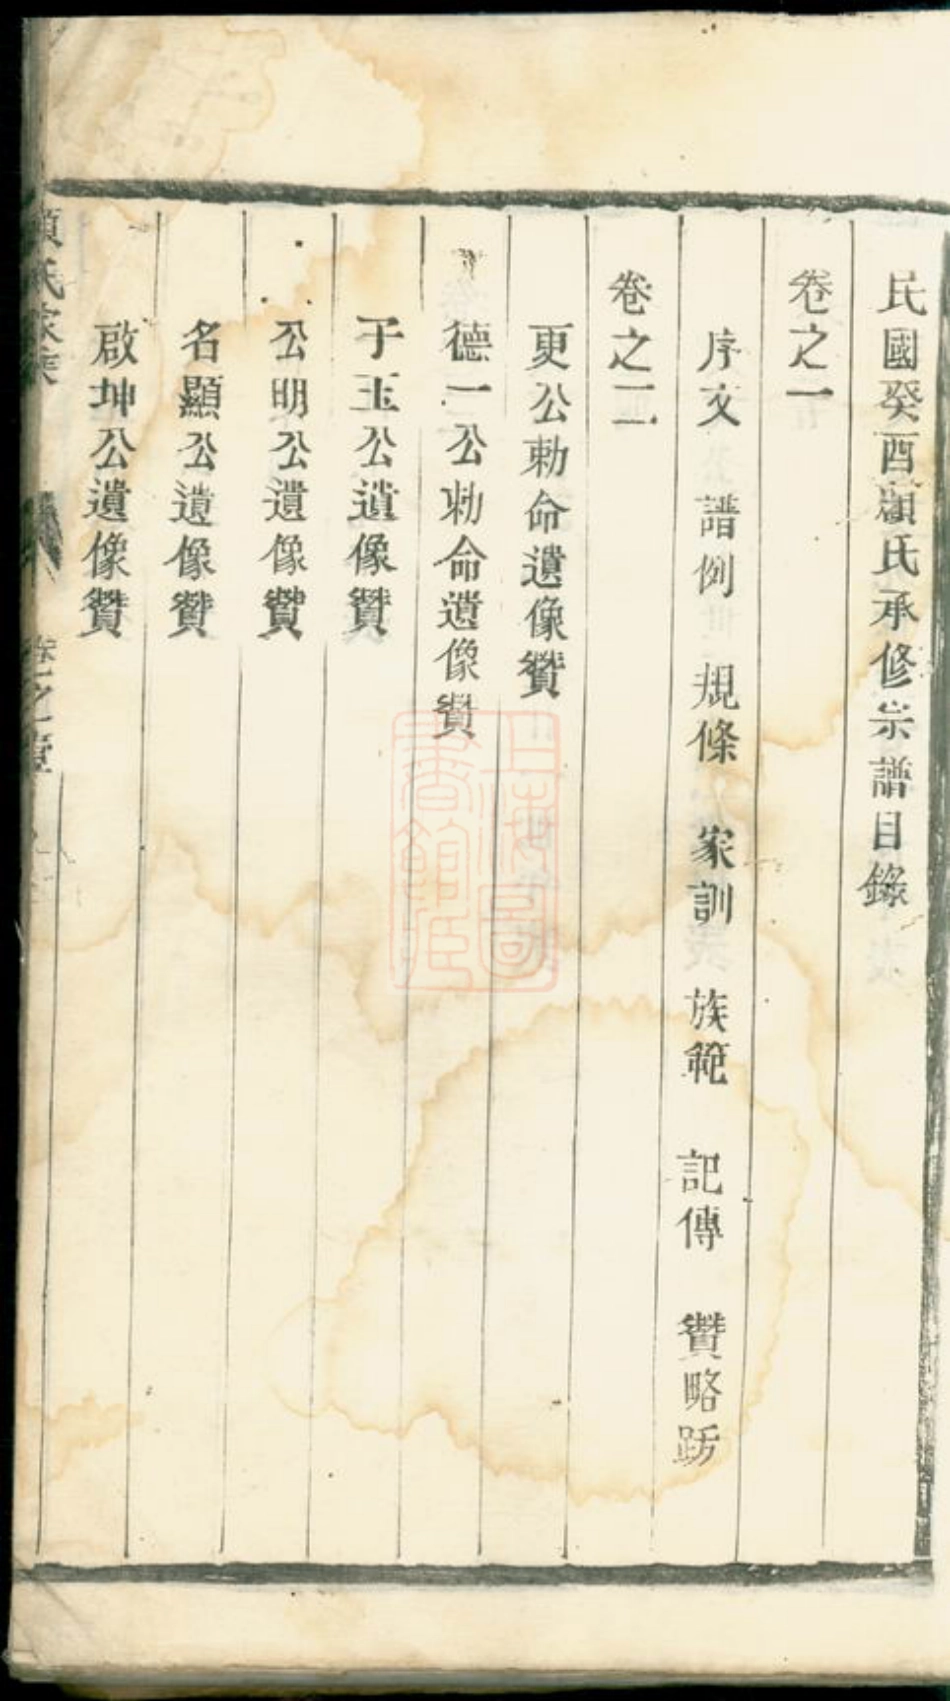 民國癸酉氏承修宗譜目錄
卷之一
序文 譜例 規條 家訓 族範 記傳 贊略跋
卷之二
更公勅命遺像贊
德一公勅命遺像贊
于玉公遺像贊
公明公遺像贊
名顯公遺像贊
啟坤公遺像贊
氏家
卷之壹
上海圖
書館藏